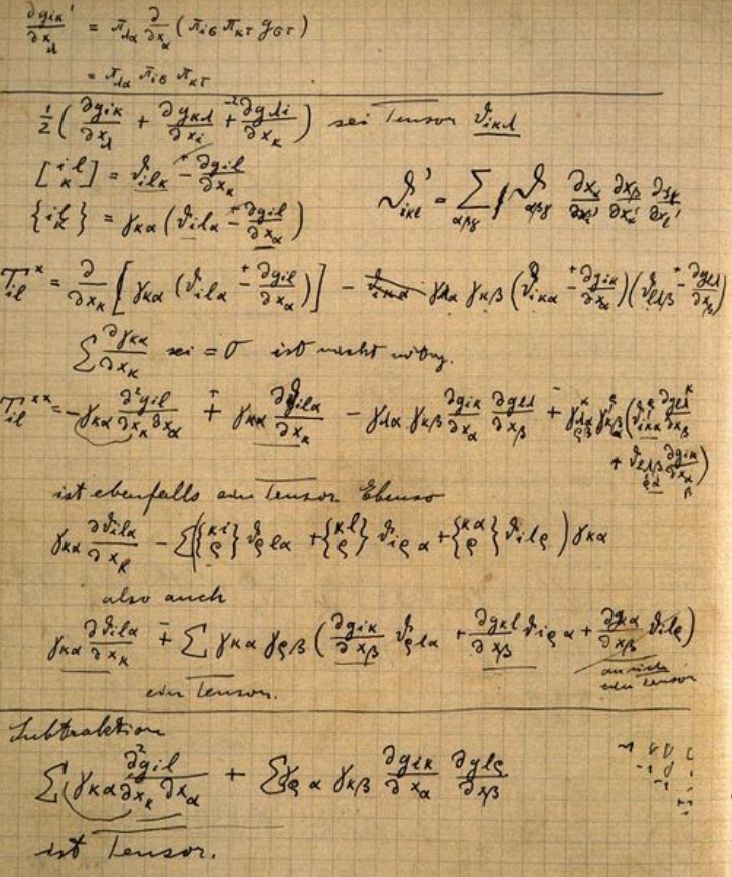 ∂g_{iκ}'/∂x_λ' = π_{λα} ∂/∂x_α (π_{iσ} π_{κτ} g_{στ})
= π_{λα} π_{iσ} π_{κτ}
1/2 (∂g_{iκ}/∂x_λ + ∂g_{κλ}/∂x_i + ∂g_{λi}/∂x_κ) sei Tensor ϑ_{iκλ}
[i l / κ] = ϑ_{ilκ} - ∂g_{il}/∂x_κ
ϑ'_{iκl} = Σ_{αβγ} ϑ_{αβγ} ∂x_α/∂x_i' ∂x_β/∂x_κ' ∂x_γ/∂x_l'
{i l / κ} = γ_{κα} (ϑ_{ilα} - ∂g_{il}/∂x_α)
T_{il}^x = ∂/∂x_κ [γ_{κα} (ϑ_{ilα} - ∂g_{il}/∂x_α)] - γ_{λα} γ_{κβ} (ϑ_{iκα} - ∂g_{iκ}/∂x_α)(ϑ_{lλβ} - ∂g_{lλ}/∂x_β)
Σ ∂γ_{κα}/∂x_κ sei = 0 ist nicht nötig.
T_{il}^{xx} = -γ_{κα} ∂²g_{il}/∂x_κ∂x_α + γ_{κα} ∂ϑ_{ilα}/∂x_κ - γ_{λα} γ_{κβ} ∂g_{iκ}/∂x_α ∂g_{lλ}/∂x_β + γ_{λα} γ_{κβ} (ϑ_{iκα} ∂g_{lλ}/∂x_β
+ ϑ_{lλβ} ∂g_{iκ}/∂x_α)
ist ebenfalls ein Tensor Ebenso
γ_{κα} ∂ϑ_{ilα}/∂x_κ - Σ({κi / ρ} ϑ_{ρlα} + {κl / ρ} ϑ_{iρα} + {κα / ρ} ϑ_{ilρ}) γ_{κα}
also auch
γ_{κα} ∂ϑ_{ilα}/∂x_κ + Σ γ_{κα} γ_{ρβ} (∂g_{iκ}/∂x_β ϑ_{ρlα} + ∂g_{κl}/∂x_β ϑ_{iρα} + ∂g_{κα}/∂x_β ϑ_{ilρ})
an sich
ein Tensor
ein Tensor.
Subtraktion
Σ γ_{κα} ∂²g_{il}/∂x_κ∂x_α + Σ γ_{ρα} γ_{κβ} ∂g_{iκ}/∂x_α ∂g_{lρ}/∂x_β
-1 0 0
-1 0
-1
ist Tensor.